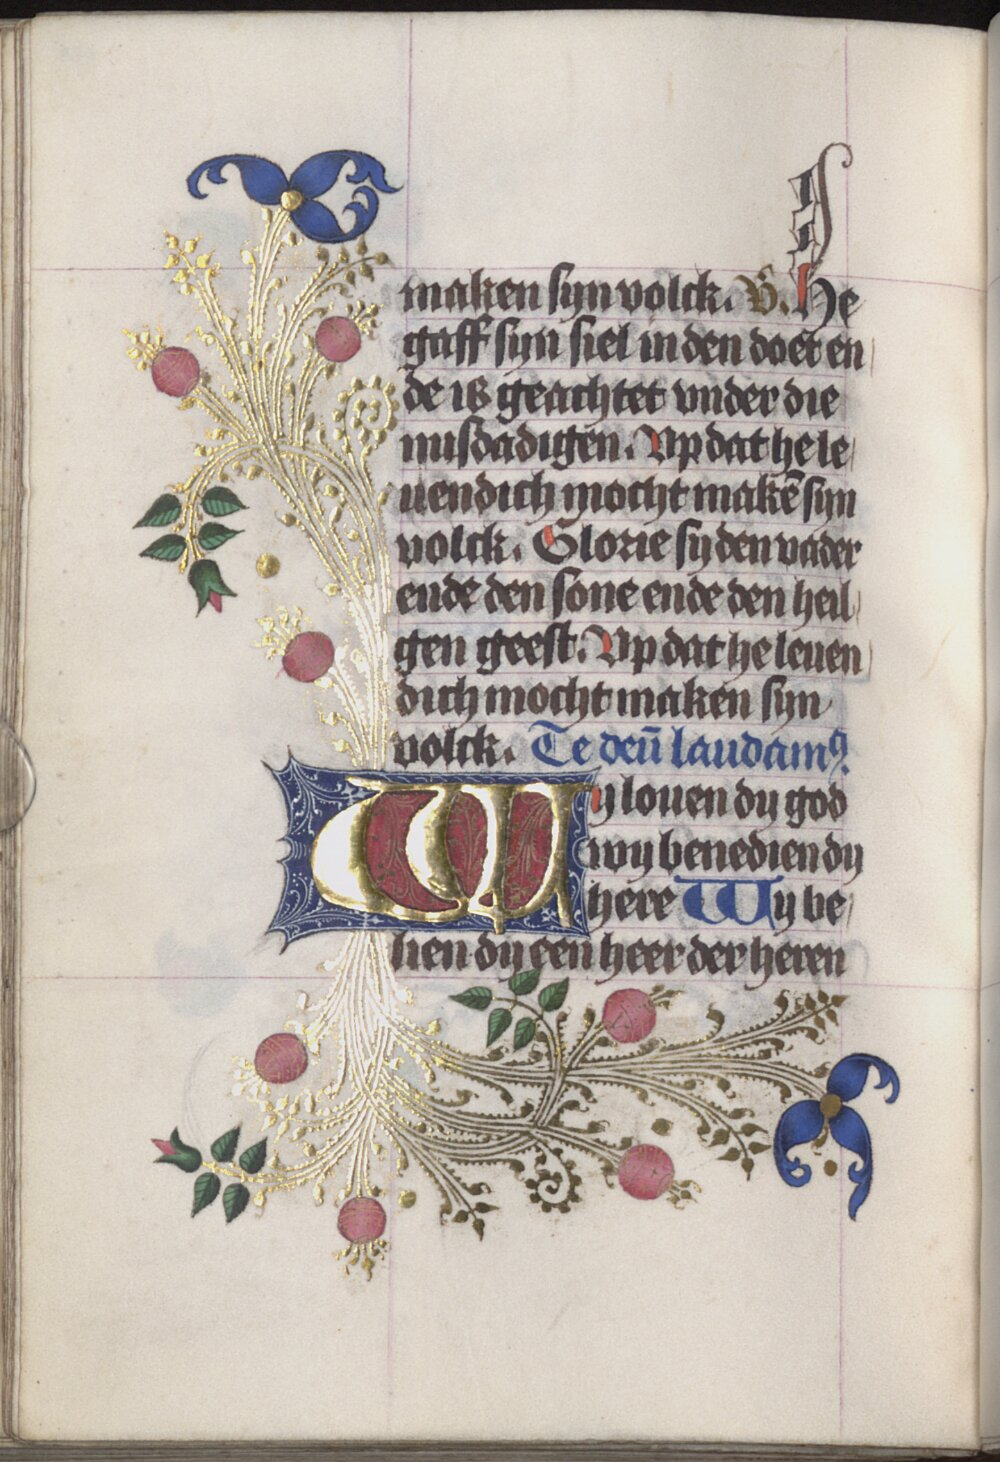 maken syn volck. V. He
gaff syn siel in den doet en
de is geachtet vnder die
misdadigen. Vp dat he le
uendich mocht makē syn
volck. Glorie sy den vader
ende den sone ende den heil
gen geest. Vp dat he leuen
dich mocht maken syn
volck. Te deū laudamꝰ.
Wy louen dy god
wy benedien dy
here Wy be
lien dy een heer der heren